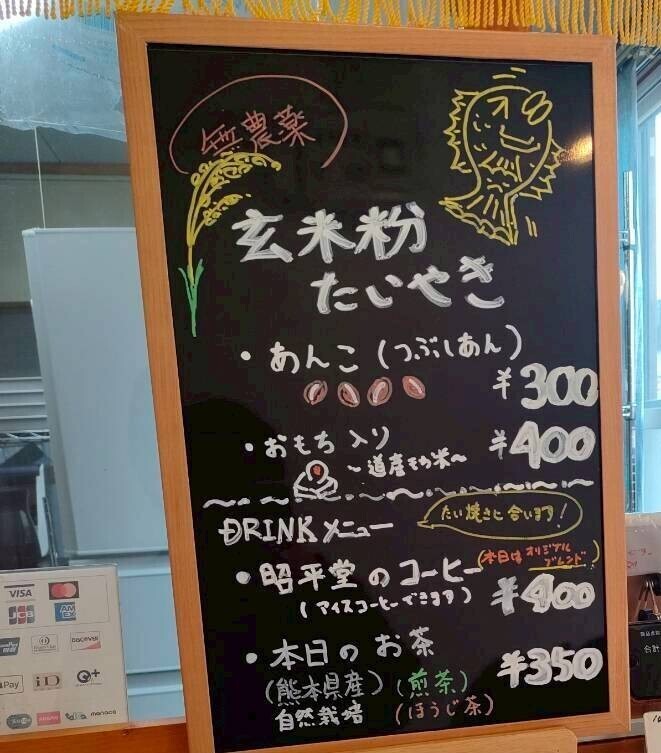 無農薬
玄米粉
たいやき
・あんこ(つぶしあん)
¥300
・おもち入り
¥400
～道産もち米～
DRINKメニュー
たい焼きに合います!
・昭平堂のコーヒー
(本日はオリジナル
ブレンド)
(アイスコーヒーできます)
¥400
・本日のお茶
¥350
(熊本県産)(煎茶)
自然栽培 (ほうじ茶)
VISA
JCB
AMEX
DISCOVER
Pay
iD
nanaco
合計